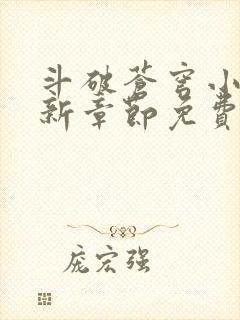 斗破苍穹小
新章節免費
庞宏强